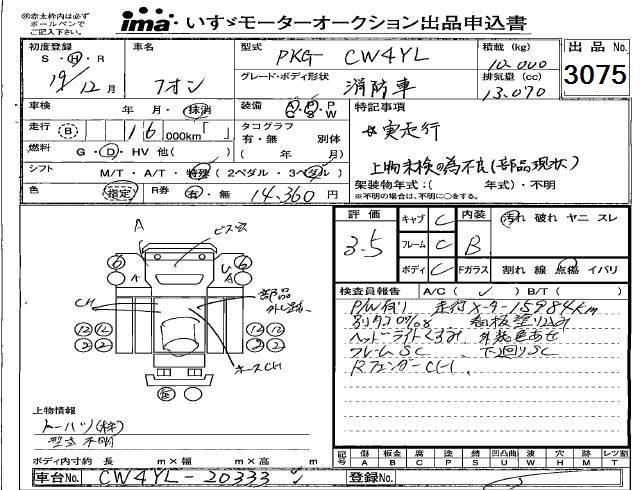 ㊟赤太枠内は必ず
ボールペンで
ご記入下さい。
ima いすゞモーターオークション出品申込書
初度登録 車名 型式 PKG- CW4YL 積載(kg) 10,000 出品No.
S・H・R 19/12月 フオン グレード・ボディ形状 消防車 排気量(cc) 13,070 3075
車検 年・月・抹消 装備 A/C P/S P/W 特記事項
走行 B 16 000km「 」 タコグラフ 有・無 別体 ( 年 月) 実走行
燃料 G・D・HV 他( ) 上物未検の為不良(部品現状)
シフト M/T・A/T・特殊(2ペダル・3ペダル) 架装物年式:( 年式)・不明
※不明の場合は、不明に○をする。
色 指定 R券 有・無 14,360円
評価 3.5 キャブ C 内装 B 汚れ 破れ ヤニ スレ
フレーム C
ボディ C Fガラス 割れ 線 点傷 イバリ
検査員報告 A/C( ✓ ) B/T( )
P/W有り 走行メーター15984km
看板塗り込み
ヘッドライトくすみ 外装色あせ
フレームSC 下回りSC
RフェンダーCH
A ビス穴
6 6
A U A
CH 部品外し跡
12 12 12 12
2 2 2 2
CH
上物情報
トーハツ(株)
型式不明
ボディ内寸約 長 m×幅 m×高 m
記号 傷A 板金B 腐C 塗P 錆S 凹凸曲U 波W 穴H モM トレスT レツ割T
車台No. CW4YL-20333 登録No.